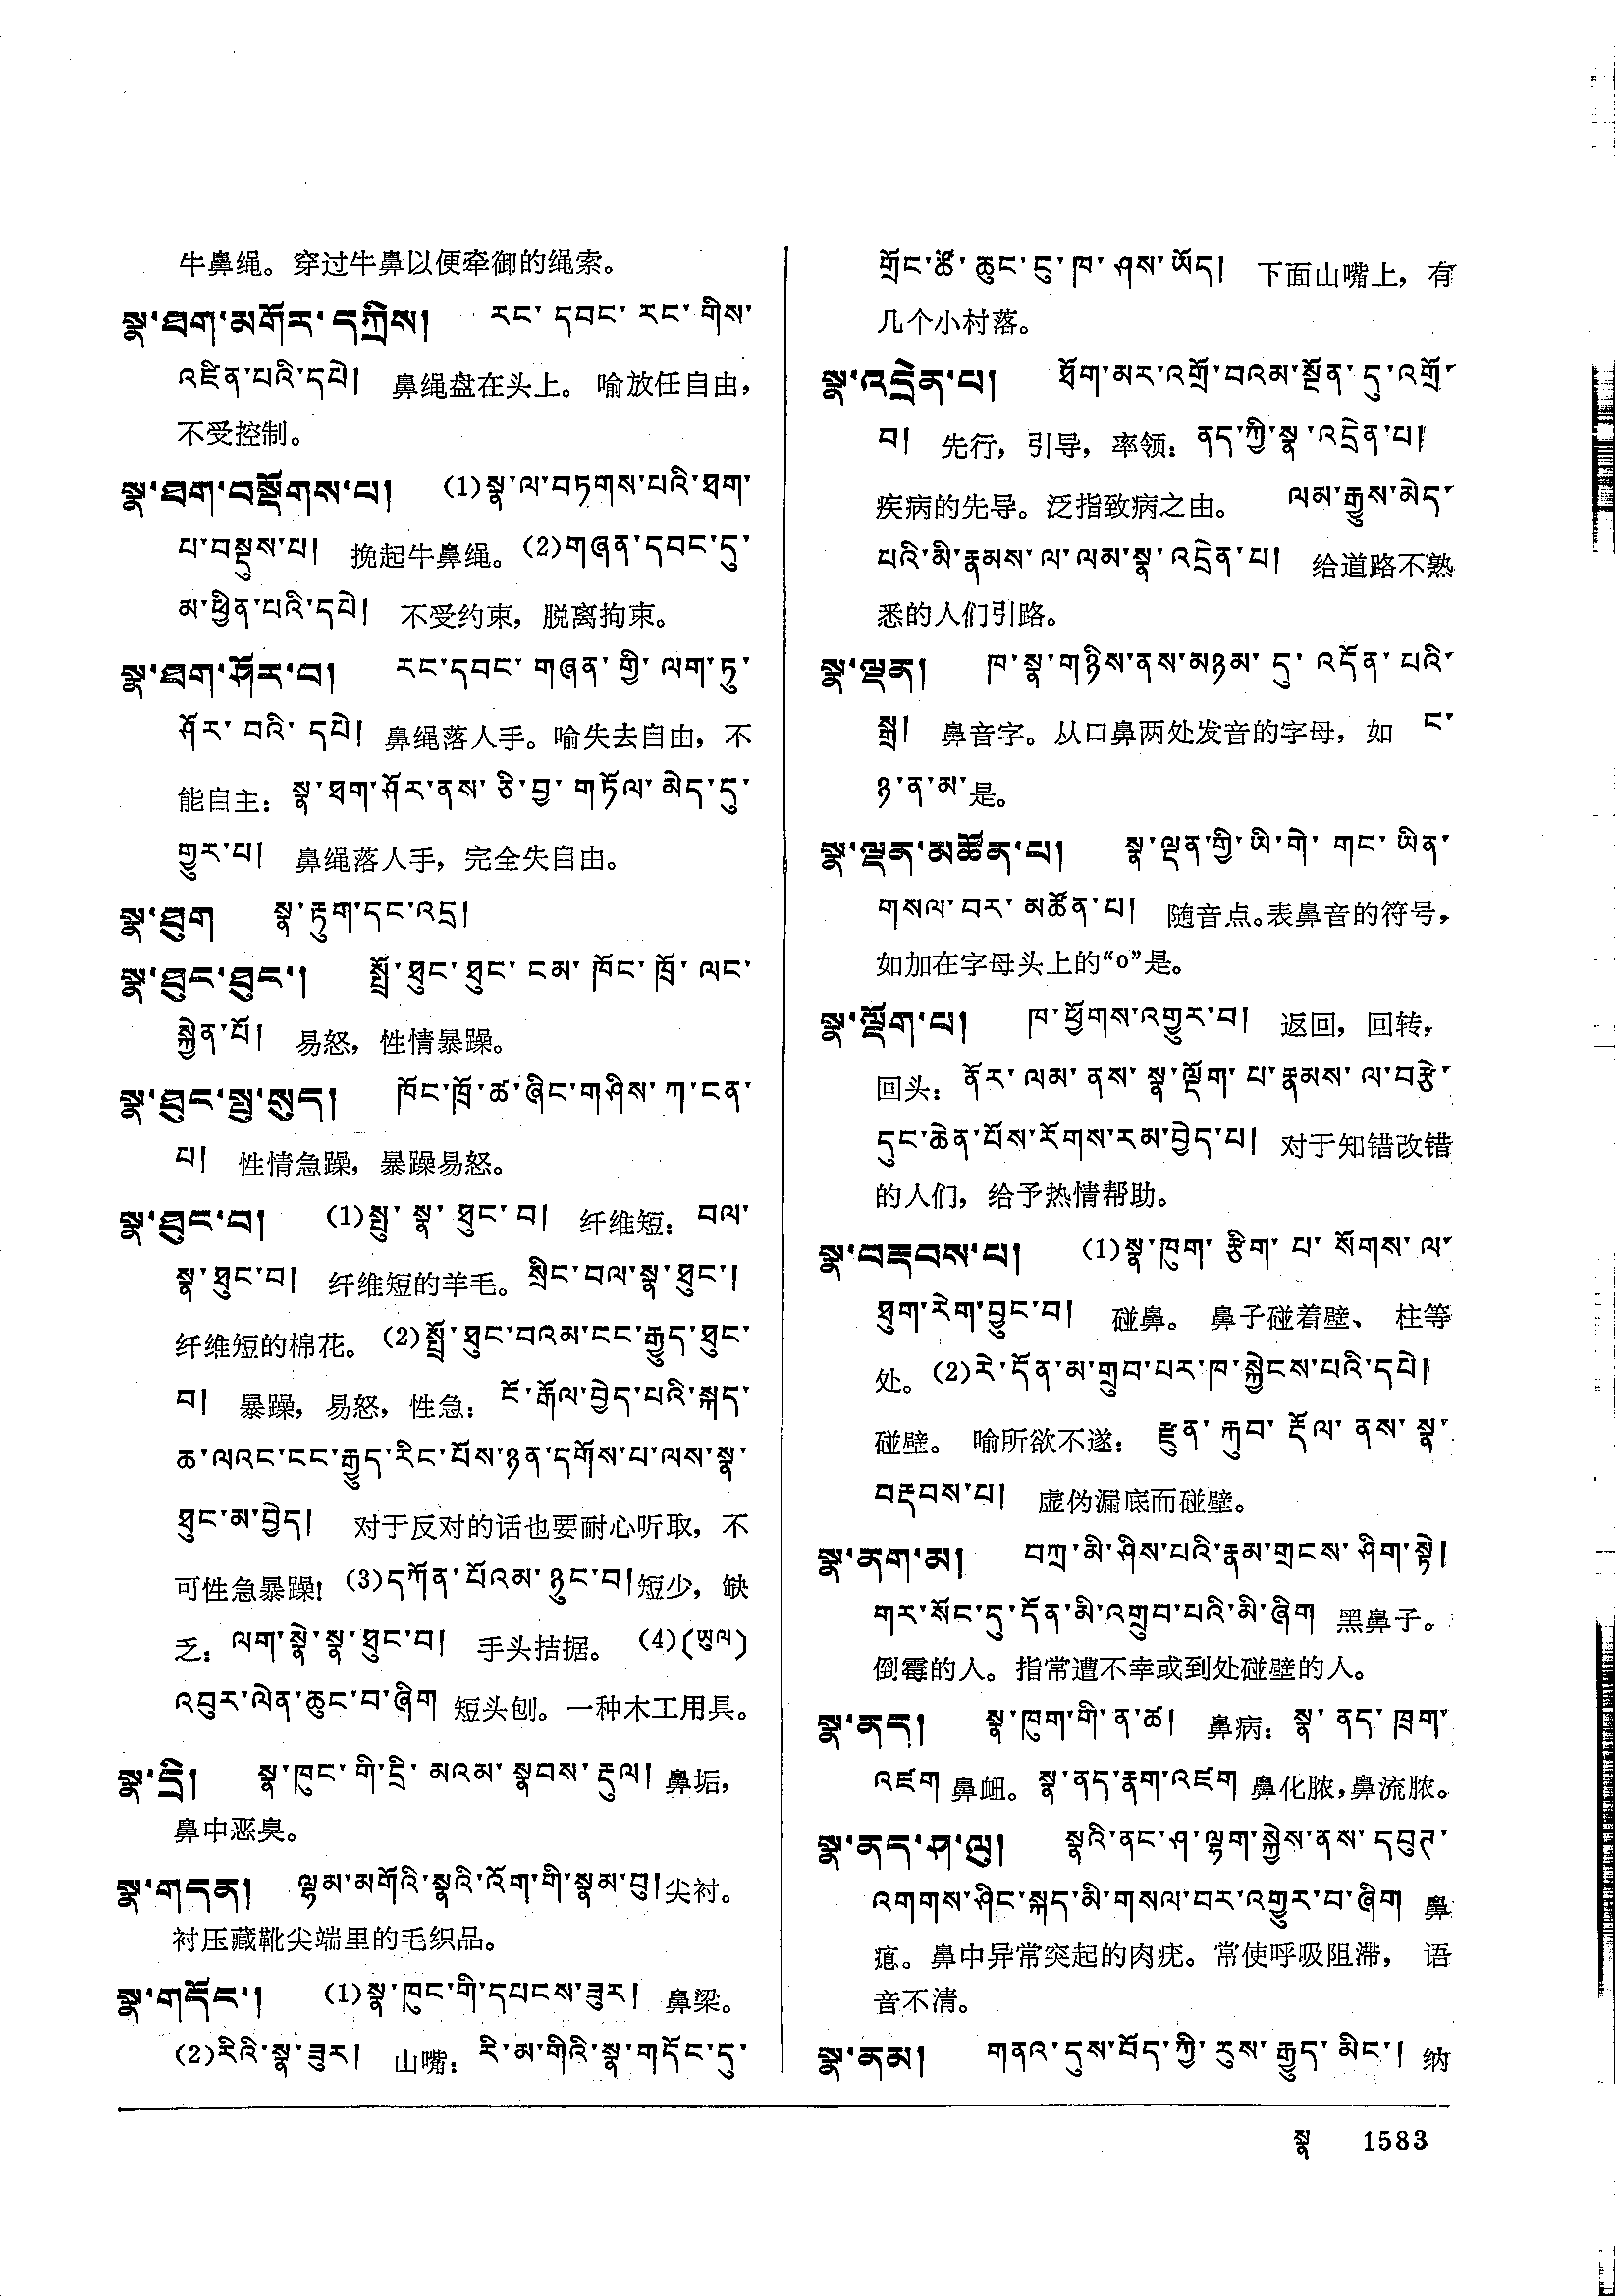 牛鼻绳。穿过牛鼻以便牵御的绳索。
སྣ་ཐག་མགོར་དཀྲིས། རང་དབང་རང་གིས་
འཛིན་པའི་དཔེ། 鼻绳盘在头上。喻放任自由，
不受控制。
སྣ་ཐག་བསྡོགས་པ། (1)སྣ་ལ་བཏགས་པའི་ཐག་
པ་བསྡུས་པ། 挽起牛鼻绳。(2)གཞན་དབང་དུ་
མ་ཕྱིན་པའི་དཔེ། 不受约束，脱离拘束。
སྣ་ཐག་ཤོར་བ། རང་དབང་གཞན་གྱི་ལག་ཏུ་
ཤོར་བའི་དཔེ། 鼻绳落人手。喻失去自由，不
能自主：སྣ་ཐག་ཤོར་ནས་ཅི་བྱ་གཏོལ་མེད་དུ་
གྱུར་པ། 鼻绳落人手，完全失自由。
སྣ་ཐུག སྣ་རྟུག་དང་འདྲ།
སྣ་ཐུང་ཐུང་། སྤྲོ་ཐུང་ཐུང་ངམ་ཁོང་ཁྲོ་ལང་
སྐྱེན་པོ། 易怒，性情暴躁。
སྣ་ཐུང་སྤུ་སུད། ཁོང་ཁྲོ་ཚ་ཞིང་གཤིས་ཀ་ངན་
པ། 性情急躁，暴躁易怒。
སྣ་ཐུང་བ། (1)སྤུ་སྣ་ཐུང་བ། 纤维短：བལ་
སྣ་ཐུང་བ། 纤维短的羊毛。སྲིང་བལ་སྣ་ཐུང་།
纤维短的棉花。(2)སྤྲོ་ཐུང་བའམ་ངང་རྒྱུད་ཐུང་
བ། 暴躁，易怒，性急：ངོ་རྒོལ་བྱེད་པའི་སྐད་
ཆ་ལའང་ངང་རྒྱུད་རིང་པོས་ཉན་དགོས་པ་ལས་སྣ་
ཐུང་མ་བྱེད། 对于反对的话也要耐心听取，不
可性急暴躁！(3)དཀོན་པོའམ་ཉུང་བ།短少，缺
乏：ལག་སྣེ་སྣ་ཐུང་བ། 手头拮据。(4)(ཡུལ)
འབུར་ལེན་ཆུང་བ་ཞིག 短头刨。一种木工用具。
སྣ་དྲི། སྣ་ཁུང་གི་དྲི་མའམ་སྣབས་རྡུལ། 鼻垢，
鼻中恶臭。
སྣ་གདན། ལྷམ་མགོའི་སྣའི་འོག་གི་སྣམ་བུ།尖衬。
衬压藏靴尖端里的毛织品。
སྣ་གདོང་། (1)སྣ་ཁུང་གི་དཔངས་ཟུར། 鼻梁。
(2)རིའི་སྣ་ཟུར། 山嘴：རི་མ་གིའི་སྣ་གདོང་དུ་
གྲོང་ཚོ་ཆུང་ངུ་ཁ་ཤས་ཡོད། 下面山嘴上，有
几个小村落。
སྣ་འདྲེན་པ། ཐོག་མར་འགྲོ་བའམ་སྔོན་དུ་འགྲོ་
བ། 先行，引导，率领：ནད་ཀྱི་སྣ་འདྲེན་པ།
疾病的先导。泛指致病之由。 ལམ་རྒྱུས་མེད་
པའི་མི་རྣམས་ལ་ལམ་སྣ་འདྲེན་པ། 给道路不熟
悉的人们引路。
སྣ་ལྡན། ཁ་སྣ་གཉིས་ནས་མཉམ་དུ་འདོན་པའི་
སྒྲ། 鼻音字。从口鼻两处发音的字母，如 ང་
ཉ་ན་མ་是。
སྣ་ལྡན་མཚོན་པ། སྣ་ལྡན་གྱི་ཡི་གེ་གང་ཡིན་
གསལ་བར་མཚོན་པ། 随音点。表鼻音的符号，
如加在字母头上的“o”是。
སྣ་ལྡོག་པ། ཁ་ཕྱོགས་འགྱུར་བ། 返回，回转，
回头：ནོར་ལམ་ནས་སྣ་ལྡོག་པ་རྣམས་ལ་བརྩེ་
དུང་ཆེན་པོས་རོགས་རམ་བྱེད་པ། 对于知错改错
的人们，给予热情帮助。
སྣ་བརྡབས་པ། (1)སྣ་ཁུག་རྩིག་པ་སོགས་ལ་
ཐུག་རེག་བྱུང་བ། 碰鼻。鼻子碰着壁、柱等
处。(2)རེ་དོན་མ་གྲུབ་པར་ཁ་སྐྱེངས་པའི་དཔེ།
碰壁。喻所欲不遂：རྫུན་རྐུབ་རྡོལ་ནས་སྣ་
བརྡབས་པ། 虚伪漏底而碰壁。
སྣ་ནག་མ། བཀྲ་མི་ཤིས་པའི་རྣམ་གྲངས་ཤིག་སྟེ།
གར་སོང་དུ་དོན་མི་འགྲུབ་པའི་མི་ཞིག 黑鼻子。
倒霉的人。指常遭不幸或到处碰壁的人。
སྣ་ནད། སྣ་ཁུག་གི་ན་ཚ། 鼻病：སྣ་ནད་ཁྲག་
འཛག 鼻衄。སྣ་ནད་རྣག་འཛག 鼻化脓，鼻流脓。
སྣ་ནད་ཤ་ལུ། སྣའི་ནང་ཤ་ལྷག་སྐྱེས་ནས་དབུཊ་
འགགས་ཤིང་སྐད་མི་གསལ་བར་འགྱུར་བ་ཞིག 鼻
瘜。鼻中异常突起的肉疣。常使呼吸阻滞，语
音不清。
སྣ་ནམ། གནའ་དུས་བོད་ཀྱི་རུས་རྒྱུད་མིང་། 纳
སྣ 1583